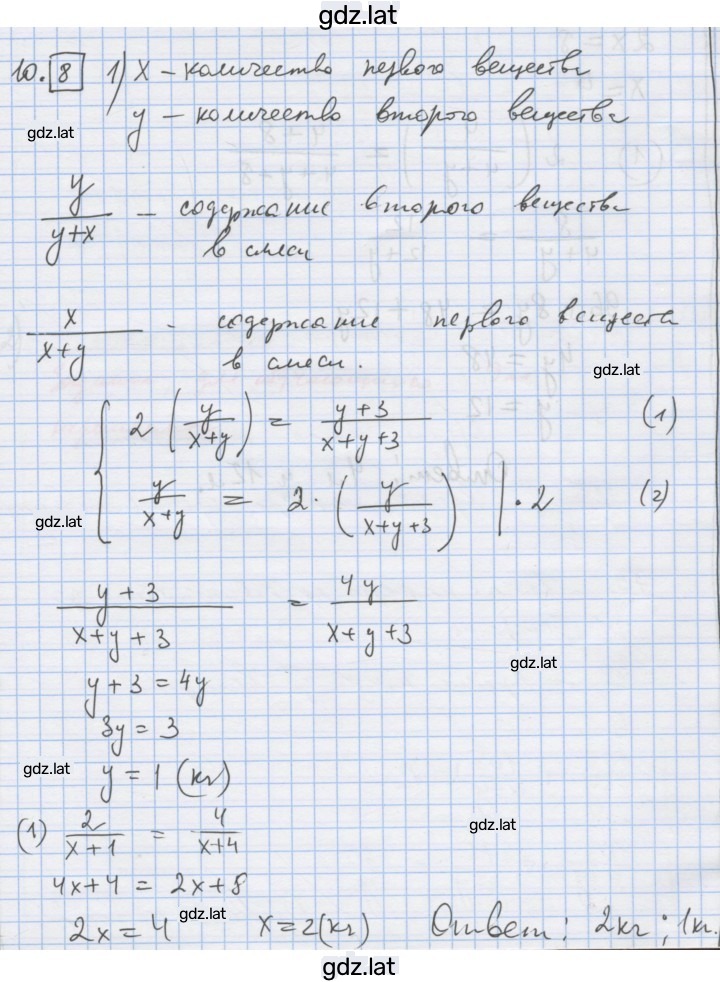 gdz.lat
10. 8 1) x – количество первого вещества
y – количество второго вещества
gdz.lat
y/(y+x) – содержание второго вещества
в смеси
x/(x+y) – содержание первого веществ
в смеси.
gdz.lat
{ 2 (y/(x+y)) = (y+3)/(x+y+3) (1)
y/(x+y) = 2·(y/(x+y+3)) | ·2 (2)
gdz.lat
(y+3)/(x+y+3) = 4y/(x+y+3)
gdz.lat
y+3 = 4y
3y = 3
gdz.lat
y = 1 (кг)
(1) 2/(x+1) = 4/(x+4)
gdz.lat
4x+4 = 2x+8
gdz.lat
2x = 4 x = 2(кг) Ответ: 2кг; 1кг.
gdz.lat